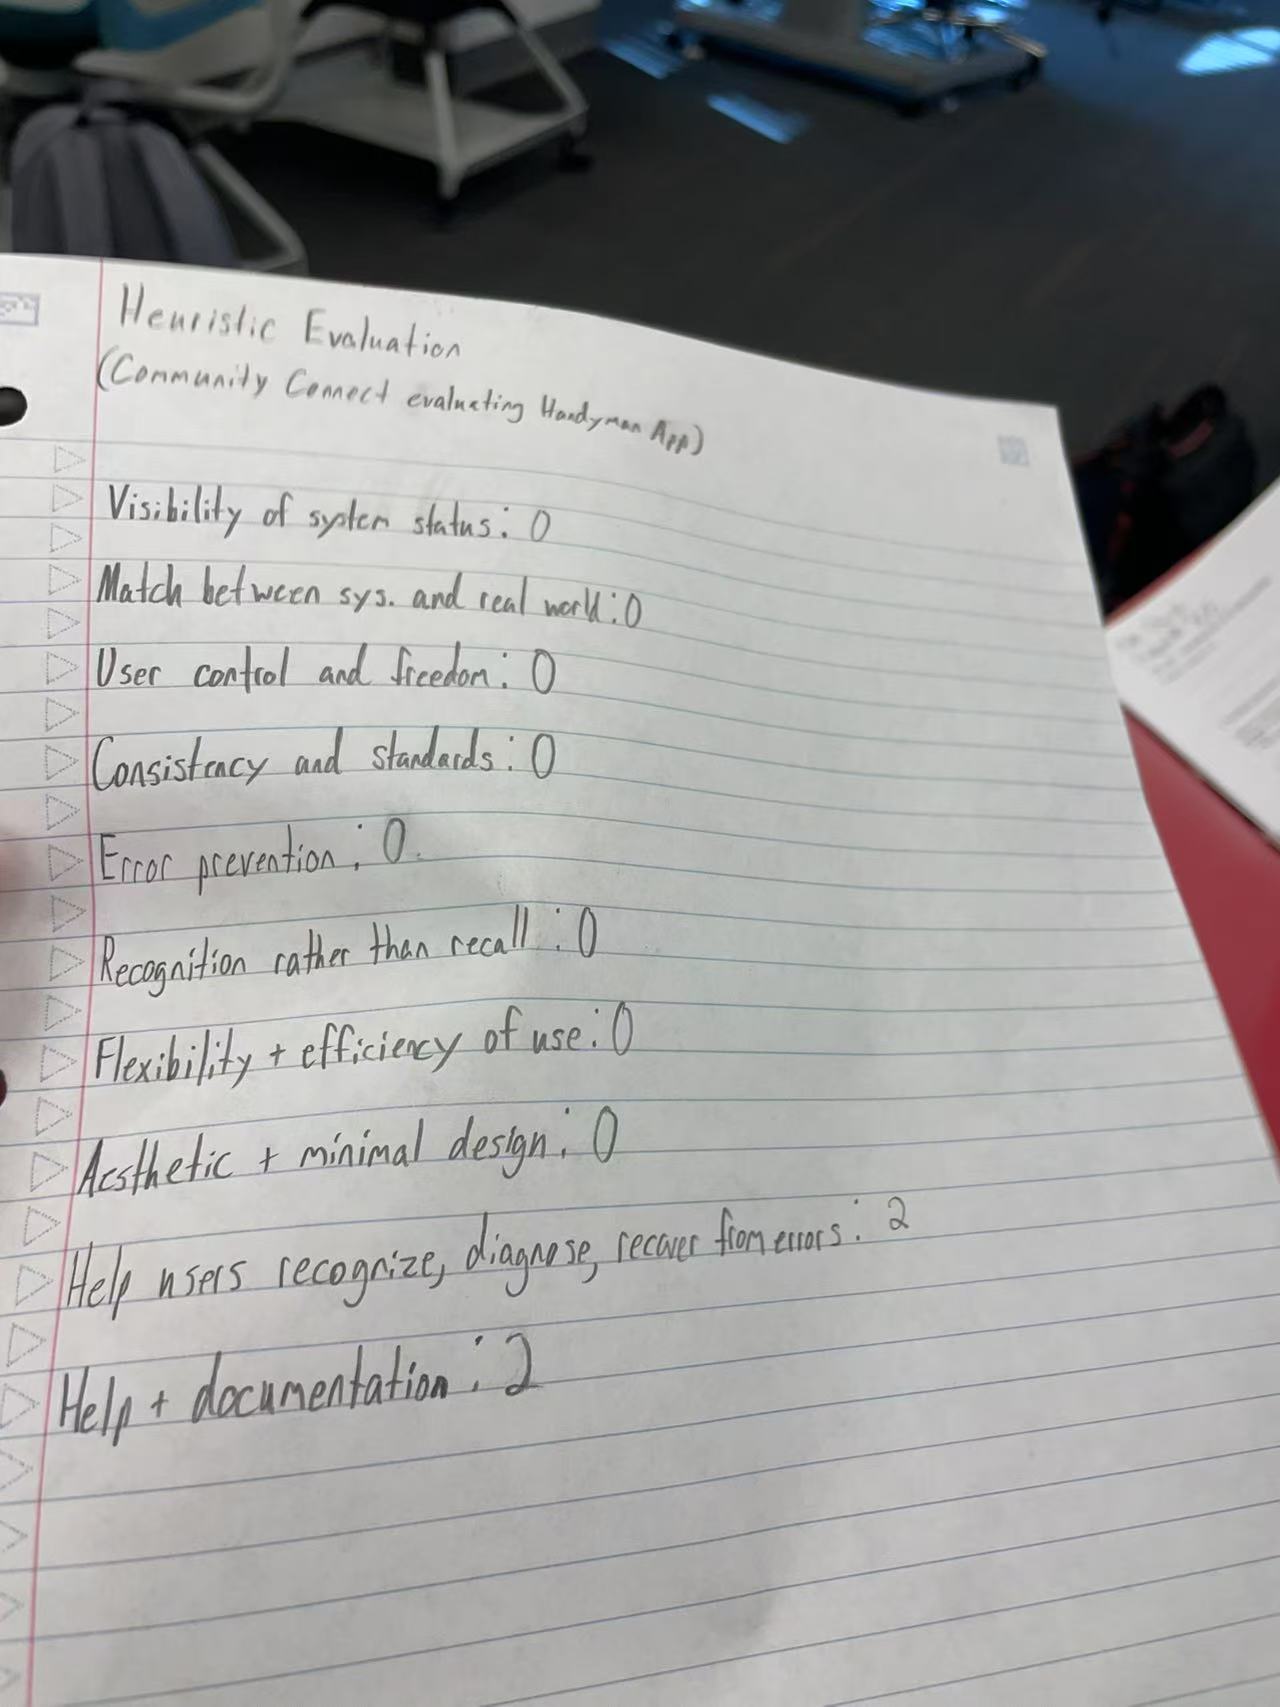 Heuristic Evaluation
(Community Connect evaluating Handyman App)
Visibility of system status: 0
Match between sys. and real world: 0
User control and freedom: 0
Consistency and standards: 0
Error prevention: 0.
Recognition rather than recall: 0
Flexibility + efficiency of use: 0
Aesthetic + minimal design: 0
Help users recognize, diagnose, recover from errors: 2
Help + documentation: 2